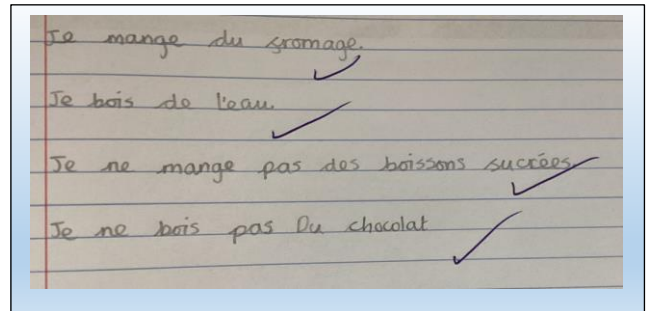 Je mange du fromage.
Je bois de l'eau.
Je ne mange pas des boissons sucrées
Je ne bois pas Du chocolat